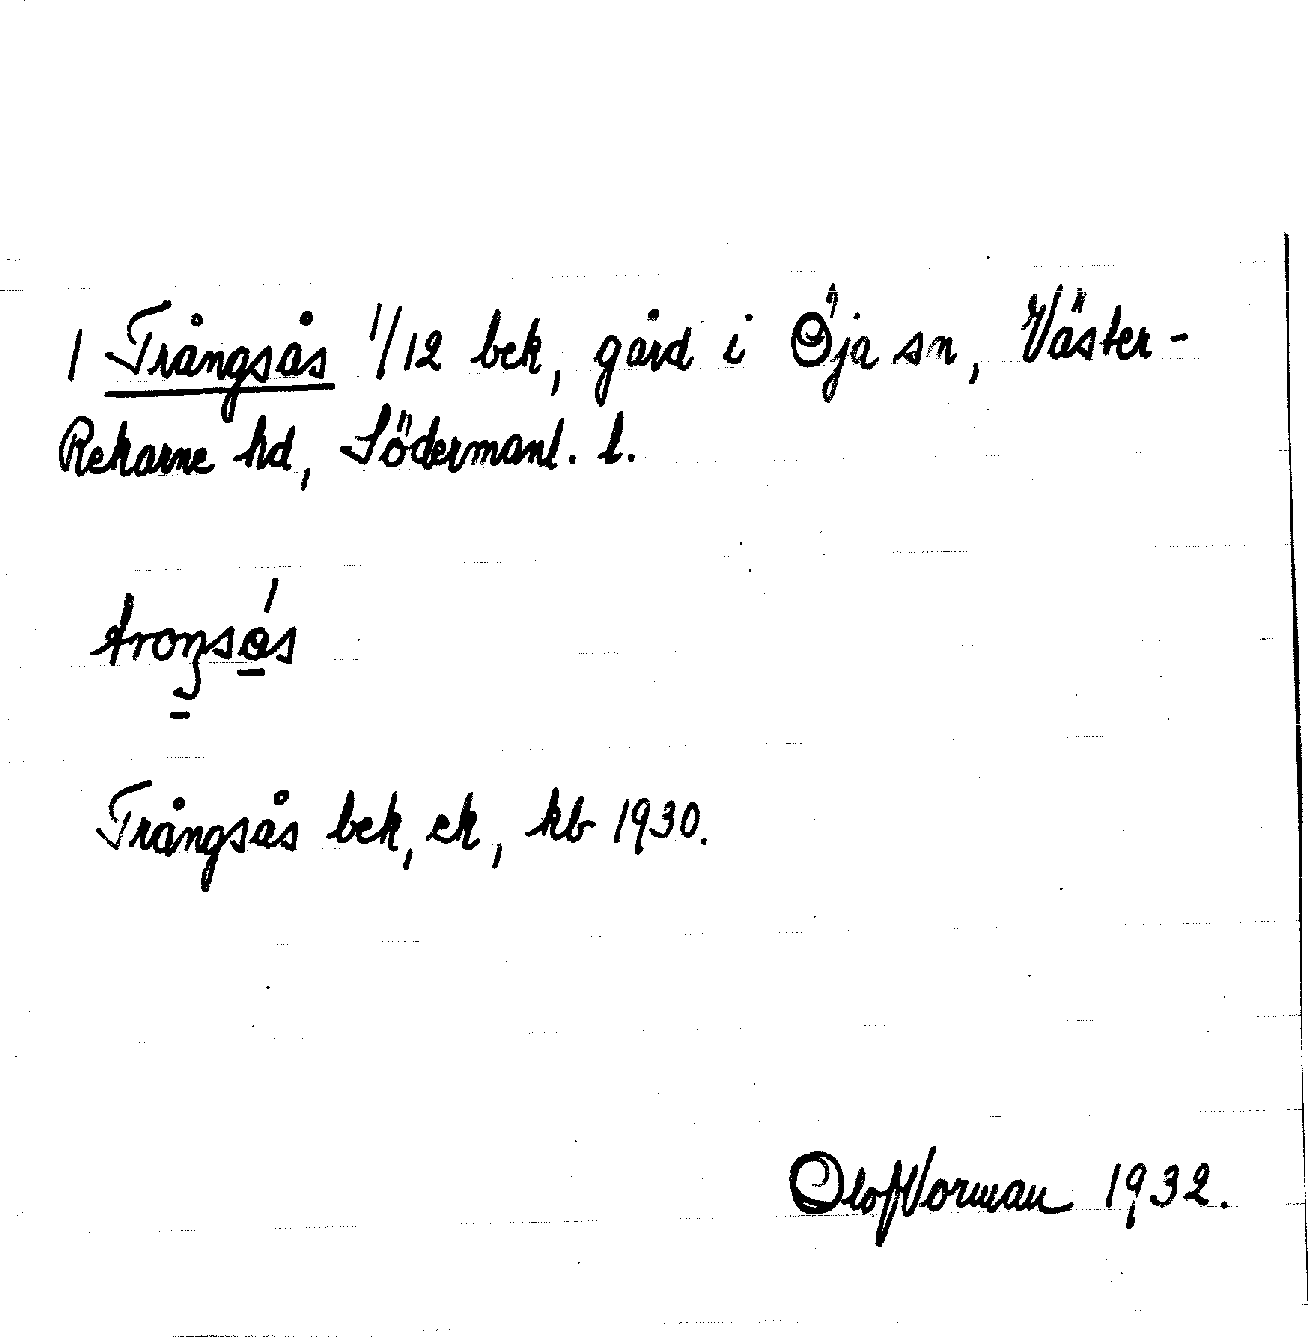 1 Trångsås 1/12 bek, gård i Öja sn, Väster-
Rekarne hd, Södermanl. l.
Trångsås bek, ek, kb 1930.
Olof Vorman 1932.